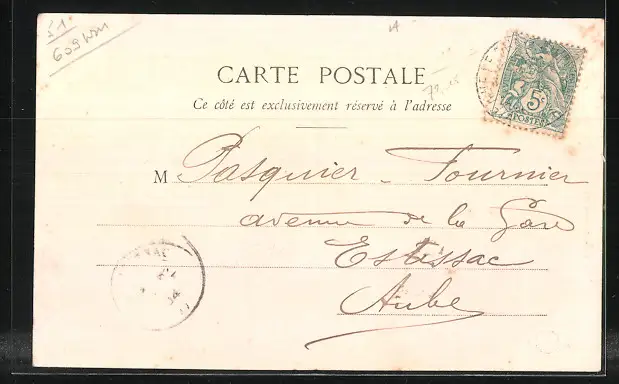 51
609
CARTE POSTALE
Ce côté est exclusivement réservé à l'adresse
5c
POSTES
M Pasquier - Fournier
avenue de la Gare
Estissac
Aube